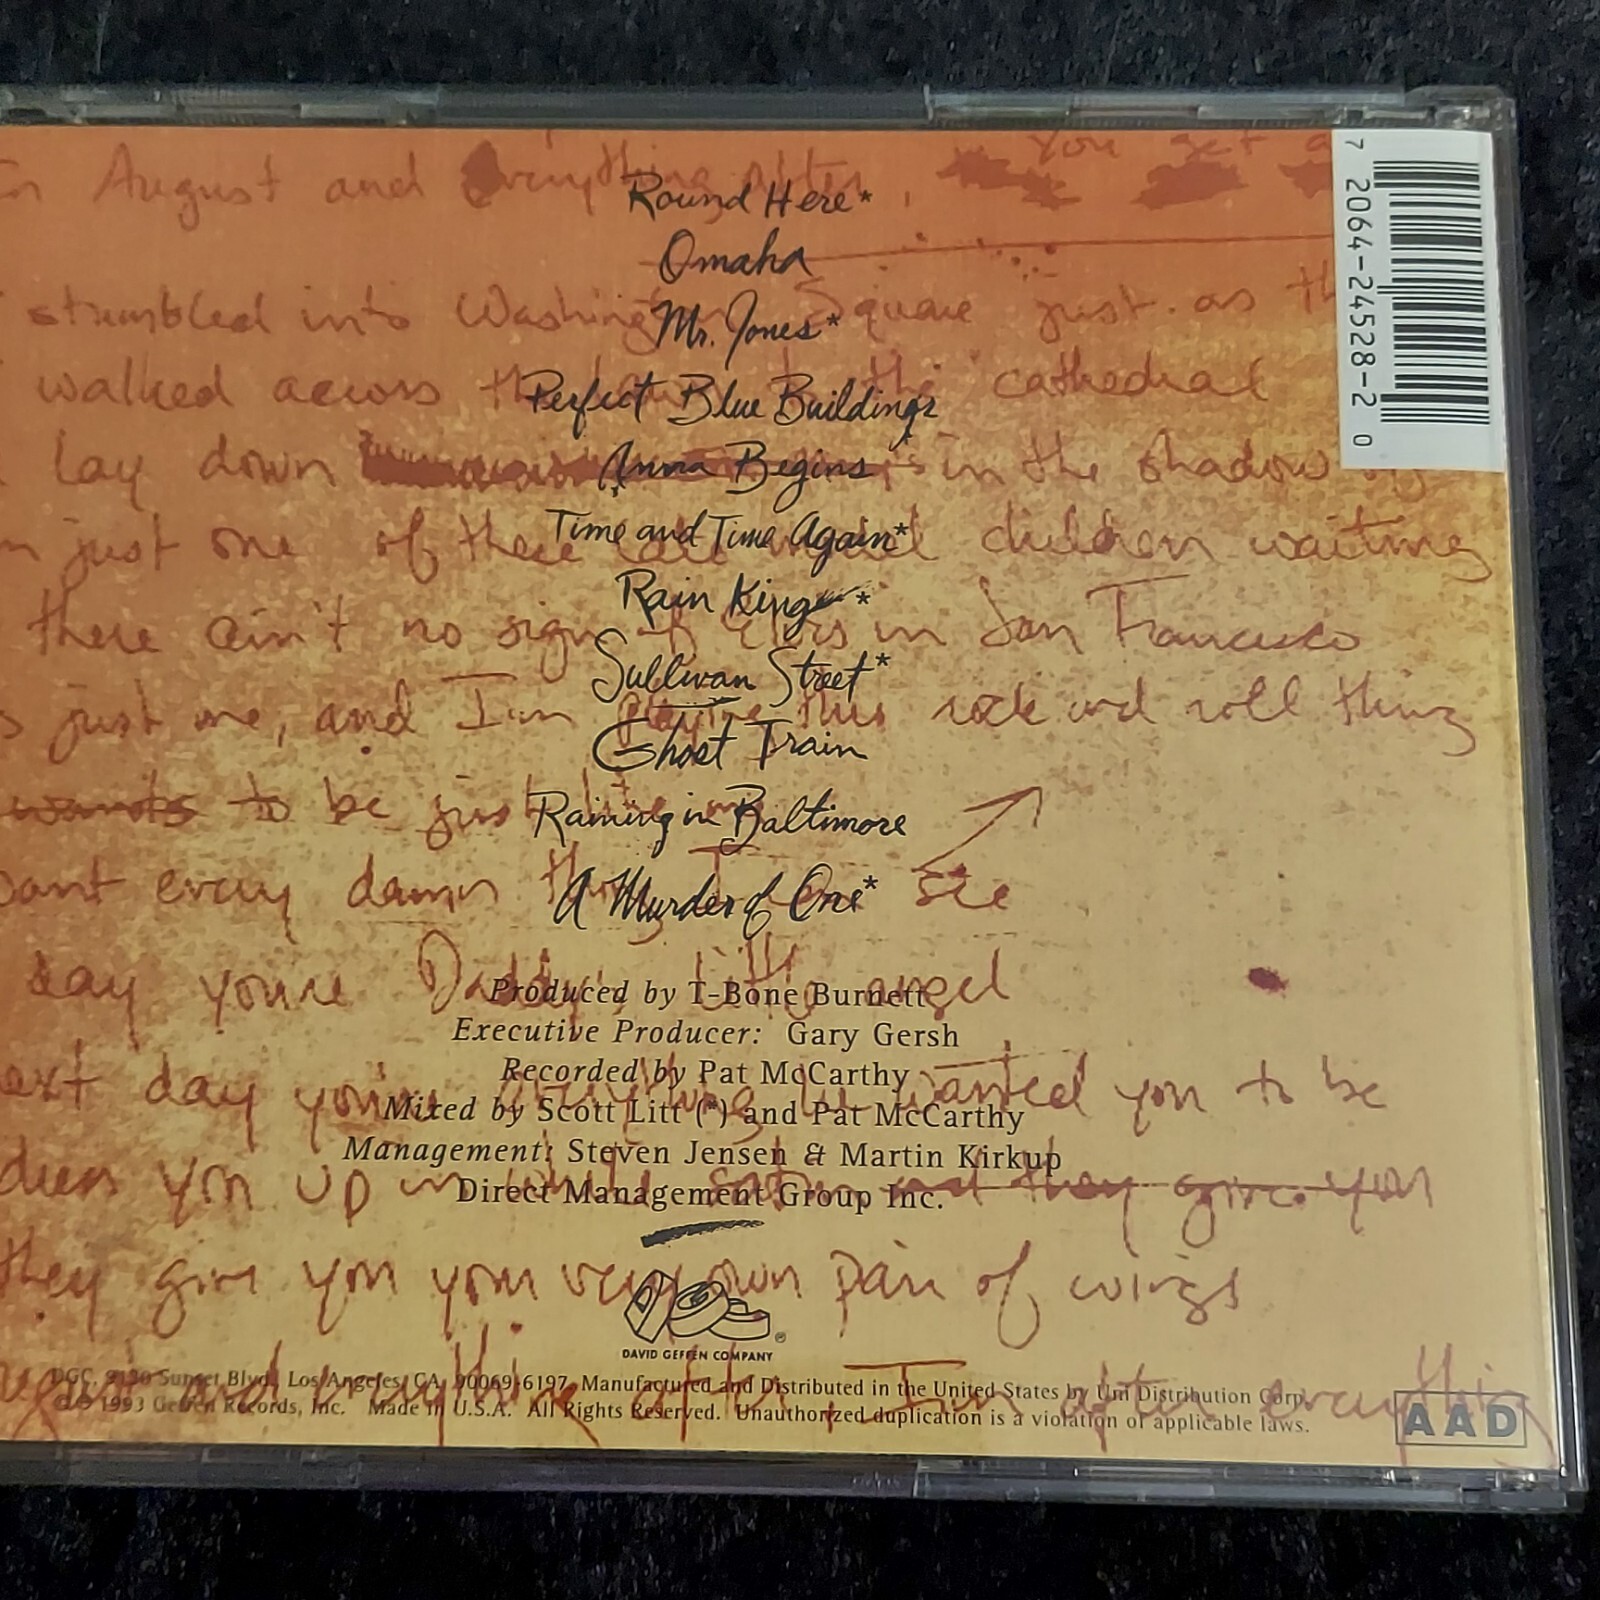 in August and everything after, You get a
Round Here*
Omaha
stumbled into Washington Square just as th
Mr. Jones*
walked across the cathedral
Perfect Blue Buildings
lay down in the shadow of
Anna Begins*
just one of these children waiting
Time and Time Again*
Rain King*
there ain't no sign of in San Francisco
Sullivan Street*
just me, and I'm playing this rock and roll thing
Ghost Train
wants to be just
Raining in Baltimore
want every damn thing I see
A Murder of One*
day you're Daddy's little angel
Produced by T-Bone Burnett
Executive Producer: Gary Gersh
Recorded by Pat McCarthy
day you're everything he wanted you to be
Mixed by Scott Litt (*) and Pat McCarthy
Management: Steven Jensen & Martin Kirkup
you up in and they give you
Direct Management Group Inc.
they give you your very own pair of wings
DAVID GEFFEN COMPANY
®
DGC, 9130 Sunset Blvd., Los Angeles, CA 90069-6197. Manufactured and Distributed in the United States by Uni Distribution Corp.
℗© 1993 Geffen Records, Inc. Made in U.S.A. All Rights Reserved. Unauthorized duplication is a violation of applicable laws.
and everything after, I'm after everything
AAD
7 2064-24528-2 0